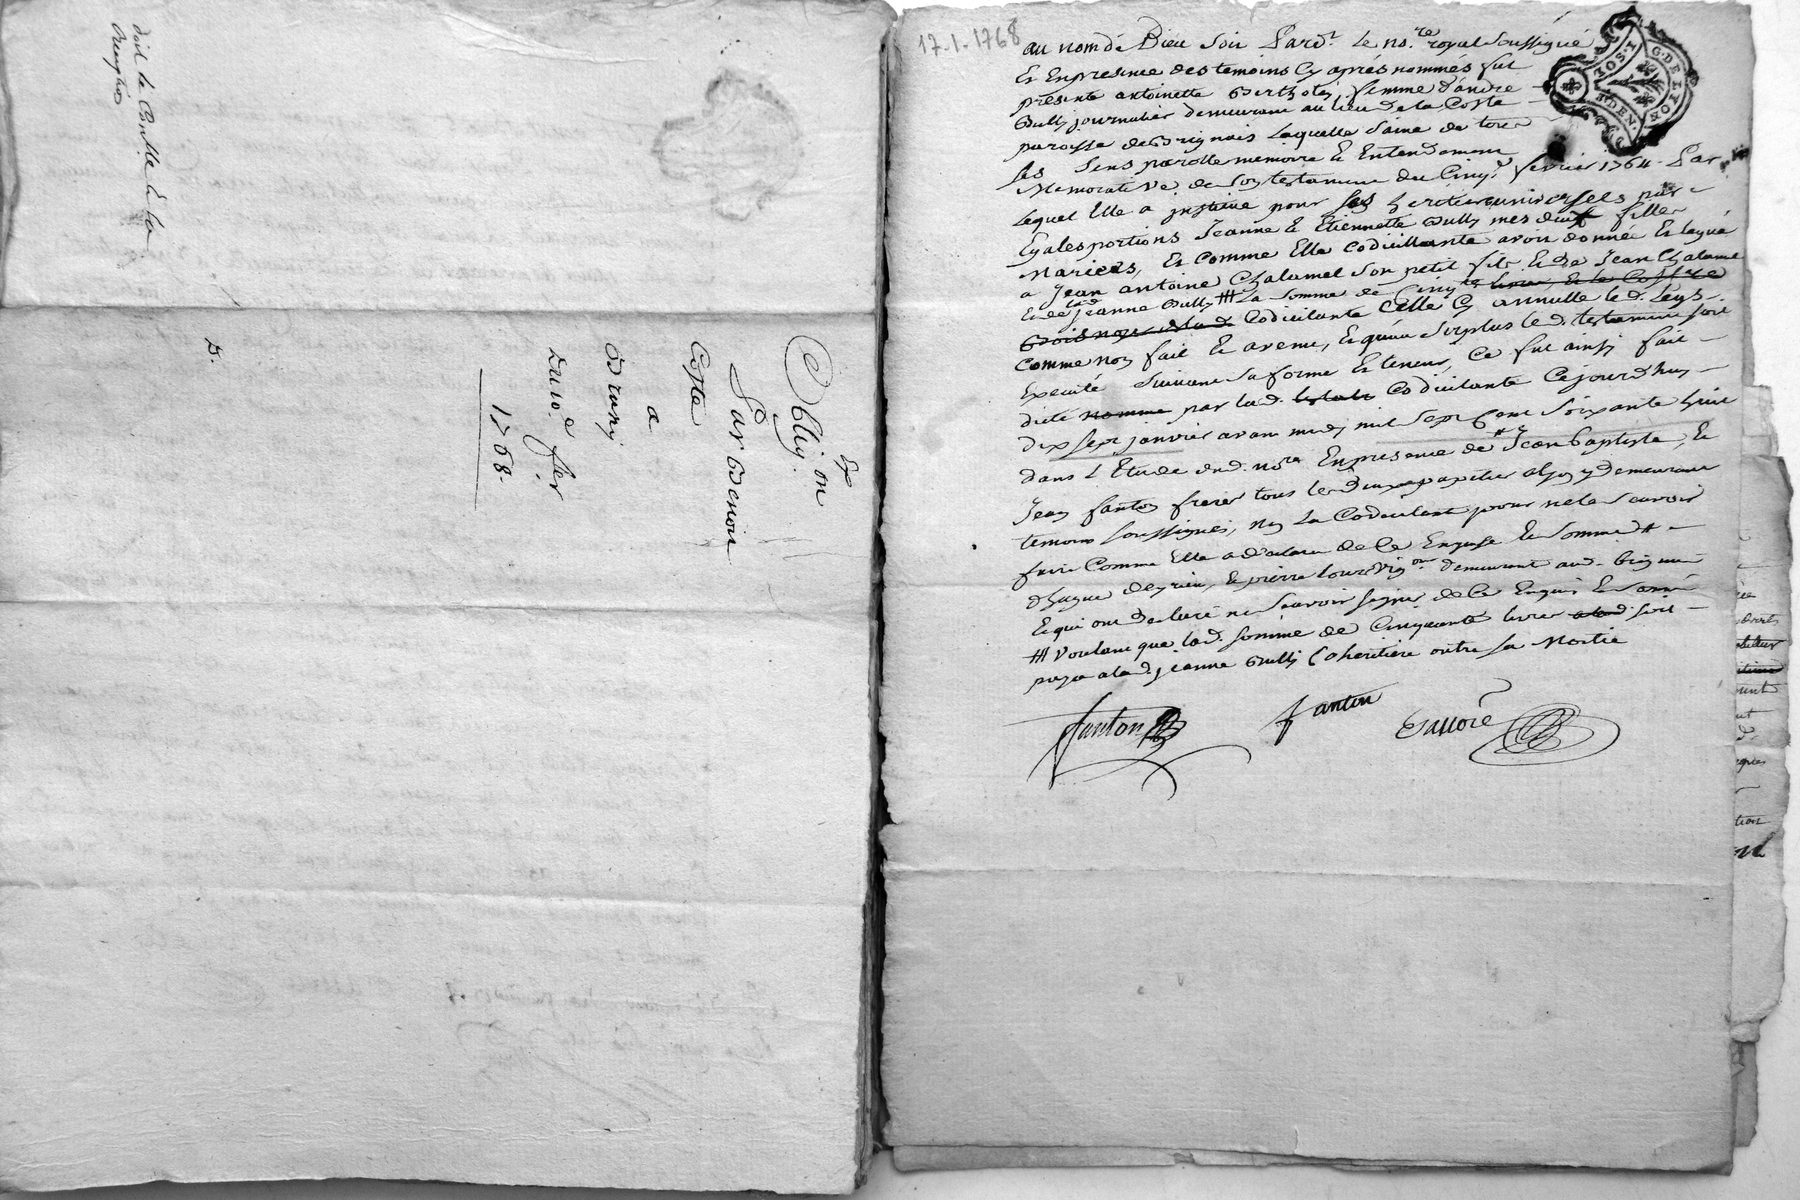 doit le Conlle & la
Exp
Oblig.on
Par Benoit
Coste
a
Drony
Du 10e fer
1768.
D.
17-1-1768
G. DE LYON
1 SOL.
DEN.
au nom de Dieu soit Pard.t le no.re royal soussigné
Et En presence des temoins Cy aprés nommés fut
presente antoinette Bertholej, femme d'andré
Bully journalier demeurant au lieu de la Coste
paroisse de Brignais Laquelle saine de tous
ses sens parolle memoire & Entendement
Memorative de son testament du Cinq.e fevrier 1764. Par
Lequel Elle a institué pour ses heritieres universels par
Egales portions Jeanne & Etiennette Bully mes deux filles
Mariees, Et Comme Elle Codicillante avoit donné Et legué
a Jean antoine Chalamel son petit fils & de Jean Chalamel
& de lad Jeanne Bully # La somme de Cinq.te livres, & le Coffre
Bois noyer lad. Codicilante Celle Cy annulle led. Legs
Comme non fait & avenu, & quau surplus led. testament soit
Executé suivant sa forme Et teneur, Ce fut ainsy fait
dicté nommé par lad. testatr Codicilante Cejourdhuy
dix sept janvier avant midy mil sept Cent soixante huit
dans L'Etude dud. no.re En presence de s.r Jean Baptiste, &
Jean fanton freres tous les deux papetier a lyon y demeurant
temoins soussignés, non La Codicilante pour ne le scavoir
faire Comme Elle a declaré de Ce Enquise & sommée #
& pierre demeurant aud. brignais
& qui ont declaré ne scavoir signer de Ce Enquis & sommé
# Voulant que lad. somme de Cinquante livres a lad. soit
payé a lad. Jeanne Bully Coheritiere outre sa Moitié
fanton
fanton